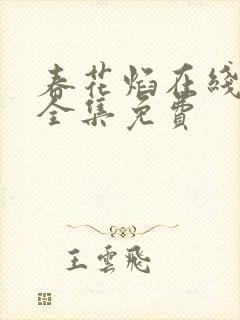 春花焰在线
全集免費
王雲飛